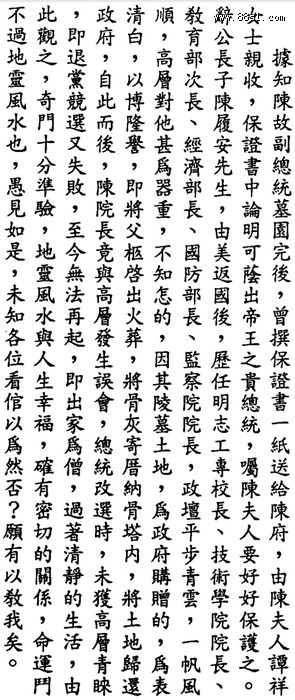 據知陳故副總統墓園完後，曾撰保證書一紙送給陳府，由陳夫人譚祥
女士親收，保證書中論明可蔭出帝王之貴總統，囑陳夫人要好好保護之。
辭公長子陳履安先生，由美返國後，歷任明志工專校長、技術學院院長、
教育部次長、經濟部長、國防部長、監察院院長，政壇平步青雲，一帆風
順，高層對他甚爲器重，不知怎的，因其陵墓土地，爲政府購贈的，爲表
清白，以博隆譽，即將父柩啓出火葬，將骨灰寄厝納骨塔內，將土地歸還
政府，自此而後，陳院長竟與高層發生誤會，總統改選時，未獲高層青睞
，即退黨競選又失敗，至今無法再起，即出家爲僧，過著清靜的生活，由
此觀之，奇門十分準驗，地靈風水與人生幸福，確有密切的關係，命運鬥
不過地靈風水也，愚見如是，未知各位看倌以爲然否？願有以教我矣。